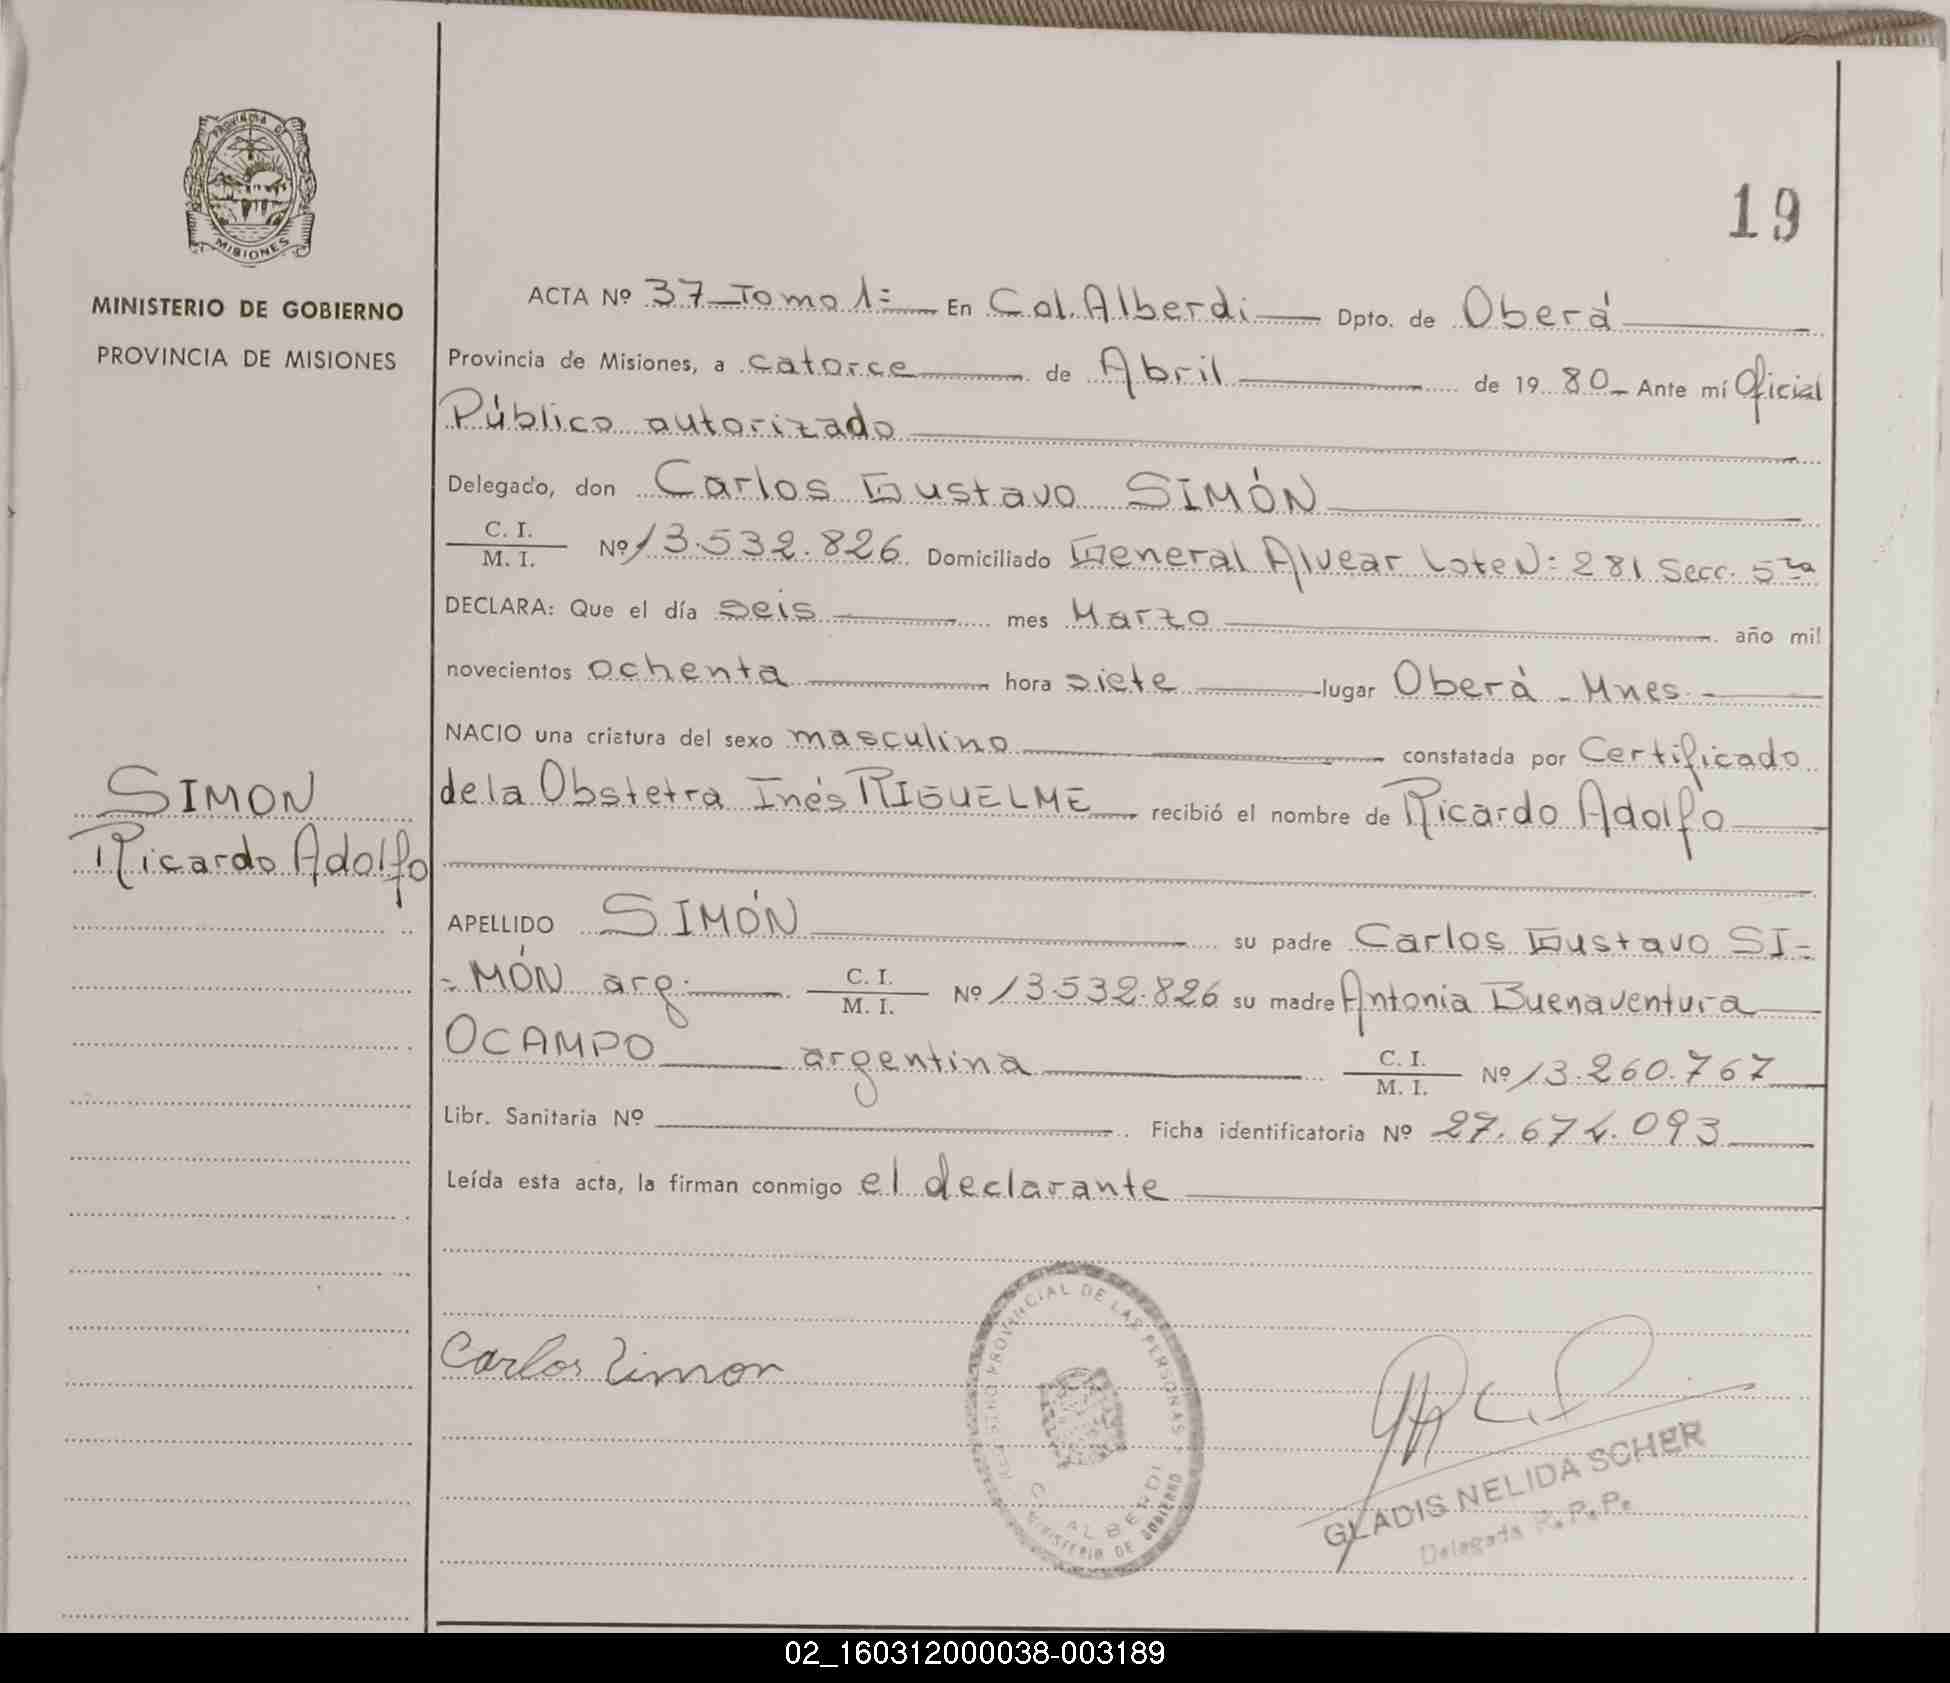 PROVINCIA DE
MISIONES
MINISTERIO DE GOBIERNO
PROVINCIA DE MISIONES
19
ACTA Nº 37 Tomo 1= En Col. Alberdi Dpto. de Oberá
Provincia de Misiones, a catorce de Abril de 1980 Ante mí Oficial
Público autorizado
Delegado, don Carlos Gustavo SIMÓN
C. I. / M. I. Nº 13.532.826 Domiciliado General Alvear Lote N: 281 Secc. 5ta
DECLARA: Que el día seis mes Marzo año mil
novecientos ochenta hora siete lugar Oberá - Mnes.
NACIO una criatura del sexo masculino constatada por Certificado
de la Obstetra Inés RIGUELME recibió el nombre de Ricardo Adolfo
SIMON
Ricardo Adolfo
APELLIDO SIMÓN su padre Carlos Gustavo SI=
=MÓN arg. C. I. / M. I. Nº 13.532.826 su madre Antonia Buenaventura
OCAMPO argentina C. I. / M. I. Nº 13.260.767
Libr. Sanitaria Nº Ficha identificatoria Nº 27.674.093
Leída esta acta, la firman conmigo el declarante
Carlos Simon
REGISTRO PROVINCIAL DE LAS PERSONAS
ALBERDI
MINISTERIO DE GOBIERNO
GLADIS NELIDA SCHER
Delegada R.P.P.
02_160312000038-003189